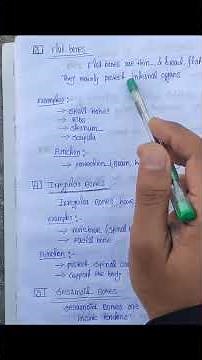 Flat bones
Flat bones are thin & broad, flat
They mainly protect internal organs
Examples :-
→ skull bones
→ Ribs
→ sternum
→ scapula
Function :-
→ protection (brain, h
Irregular Bones
Irregular Bones, have
Examples :-
→ vertebrae (spinal
→ facial bone
Function :-
→ protect spinal
→ support the body
Sesamoid Bones
Sesamoid bones are
inside tendons